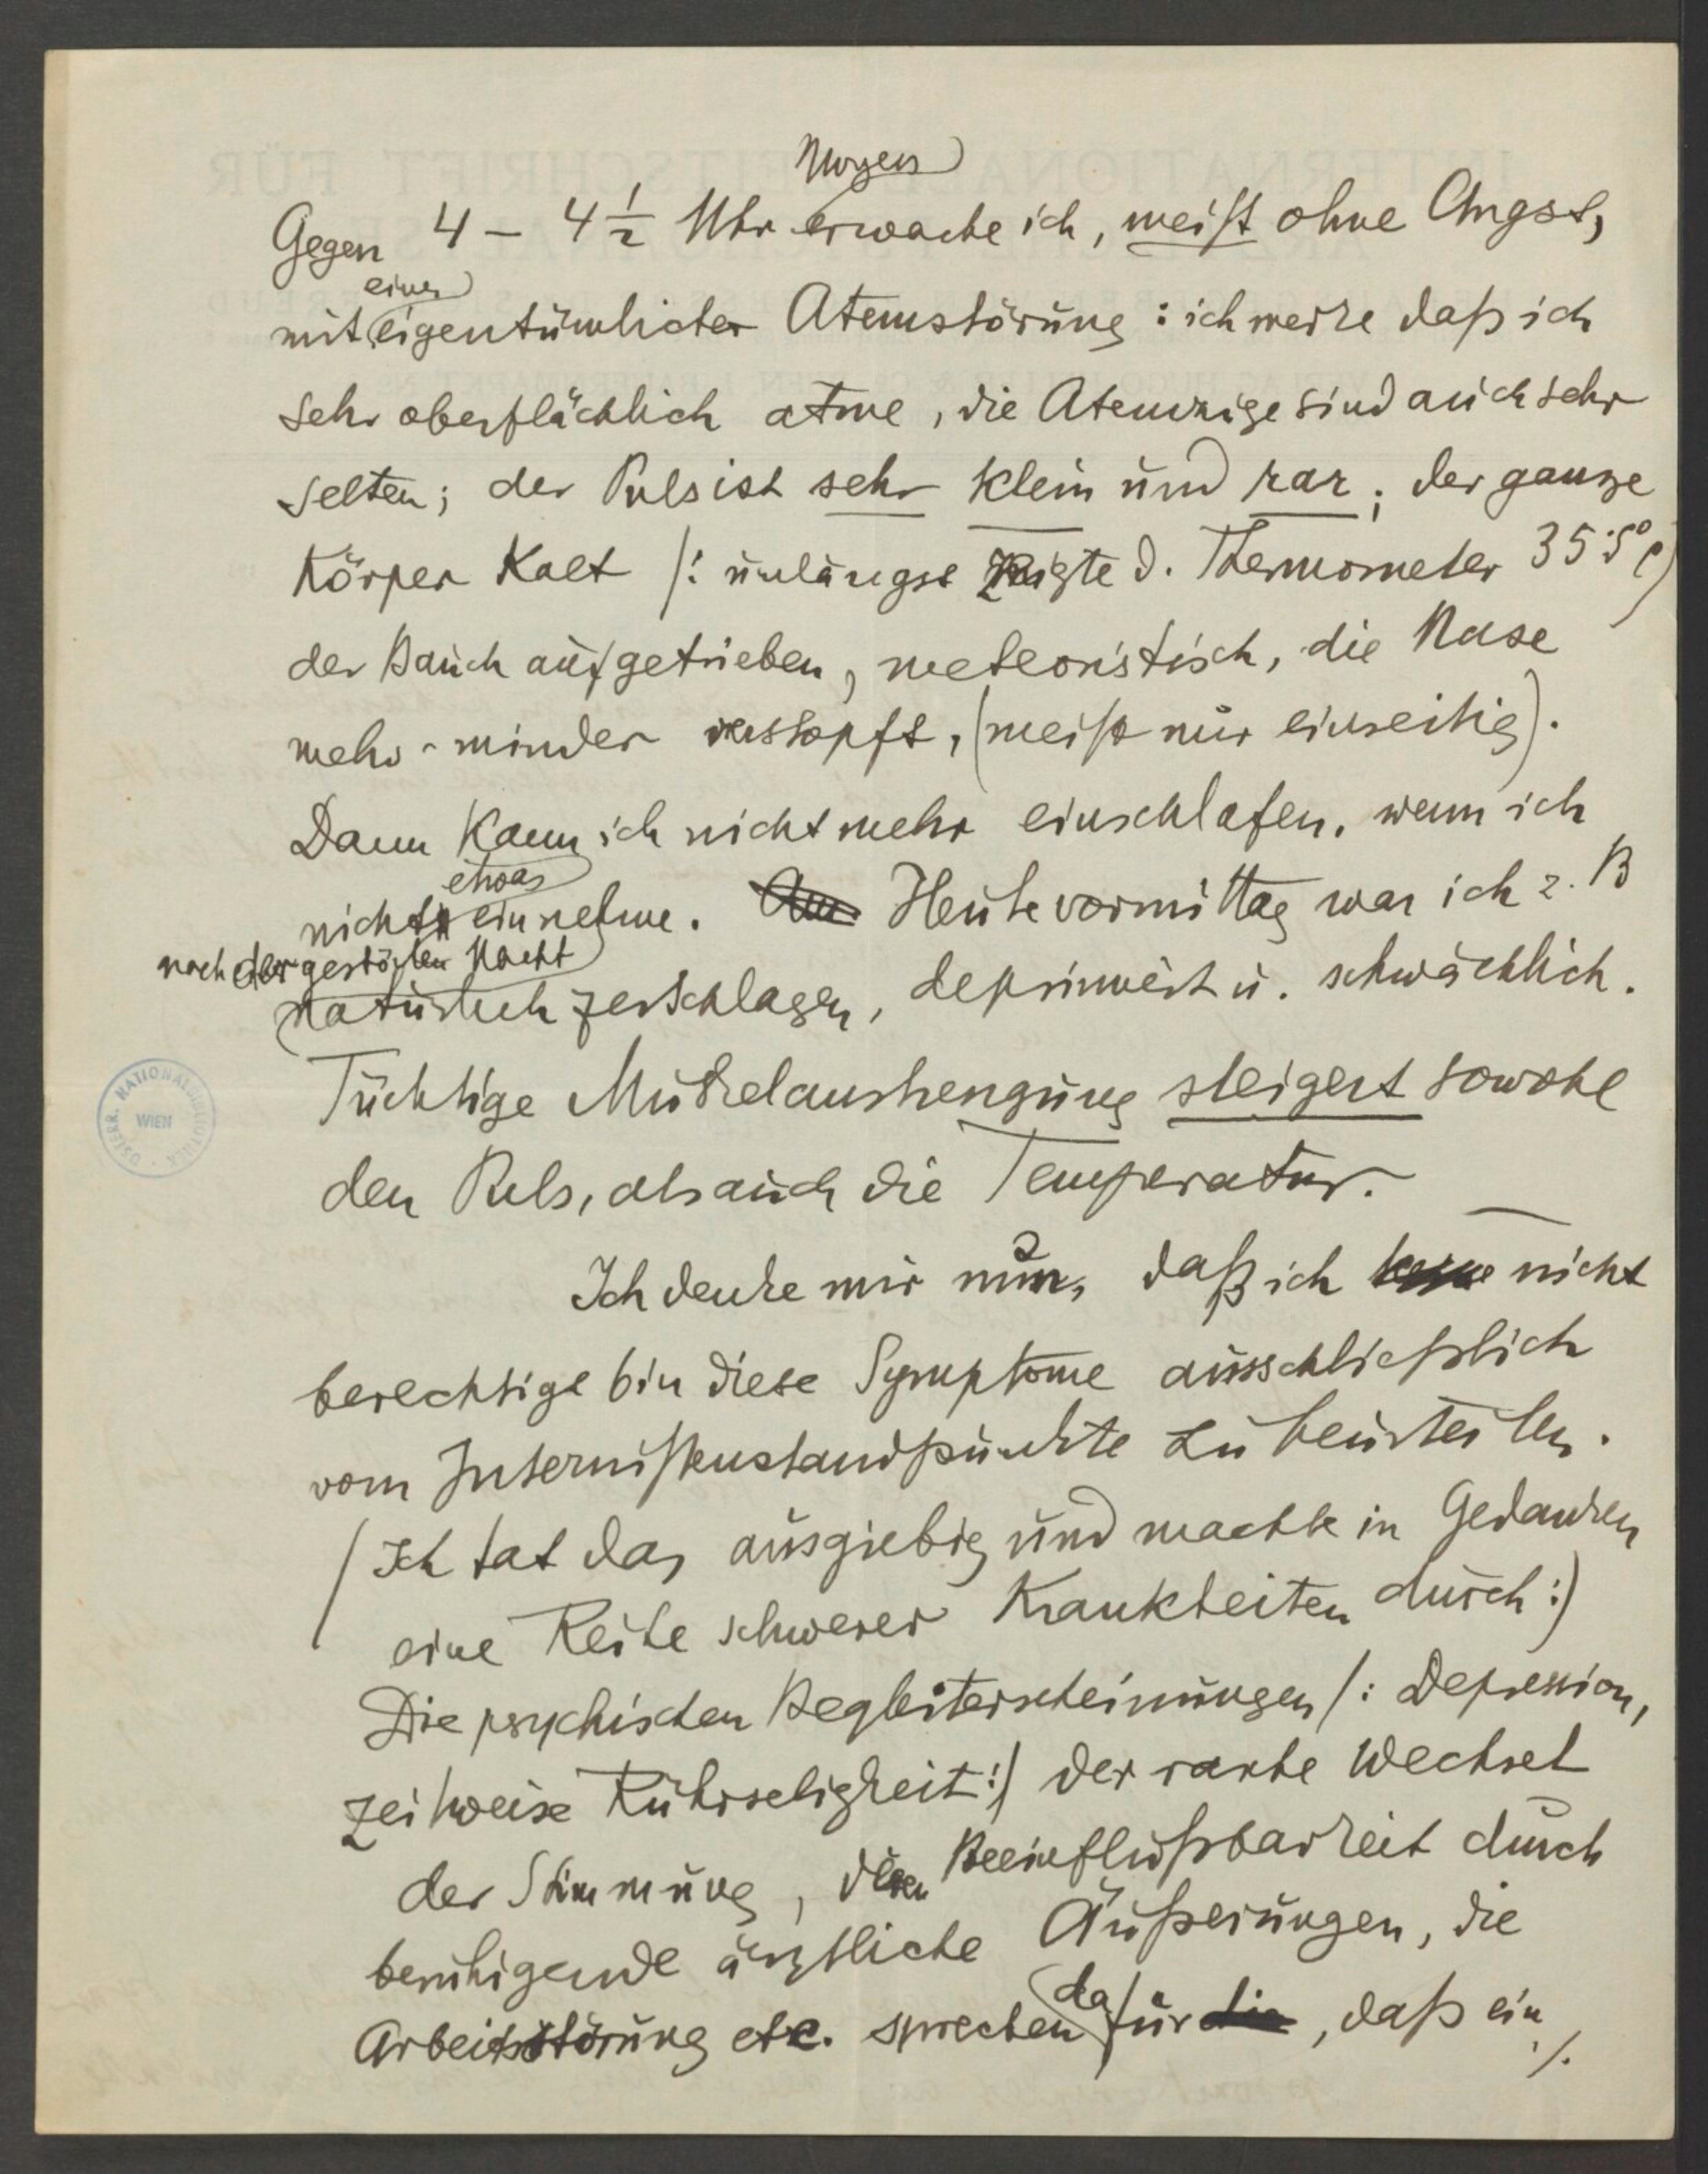 Morgens
Gegen 4 – 4 ½ Uhr erwache ich, meist ohne Angst,
einer
mit eigentümlicher Atemstörung: ich merke daß ich
sehr oberflächlich atme, die Atemzüge sind auch sehr
selten; der Puls ist sehr klein und rar; der ganze
Körper kalt /: unlängst zeigte d. Thermometer 35·5° C)
der Bauch aufgetrieben, meteoristisch, die Nase
mehr-minder verstopft, (meist nur einseitig).
Dann kann ich nicht mehr einschlafen, wenn ich
etwas
nicht einnehme. Heute vormittag war ich z. B
nach der gestörten Nacht
natürlich zerschlagen, deprimiert u. schwächlich.
Tüchtige Muskelanstrengung steigert sowohl
den Puls, als auch die Temperatur.
Ich denke mir nun, daß ich keine nicht
berechtigt bin diese Symptome ausschließlich
vom Internistenstandpunkte zu beurteilen.
/ Ich tat das ausgiebig und machte in Gedanken
eine Reihe schwerer Krankheiten durch :)
Die psychischen Begleiterscheinungen /: Depression,
zeitweise Rührseligkeit :/ der rasche Wechsel
der Stimmung, deren Beeinflußbarkeit durch
beruhigende ärztliche Äußerungen, die
da
Arbeitsstörung etc. sprechen für die, daß ein
./.
ÖSTERR. NATIONALBIBLIOTHEK
WIEN